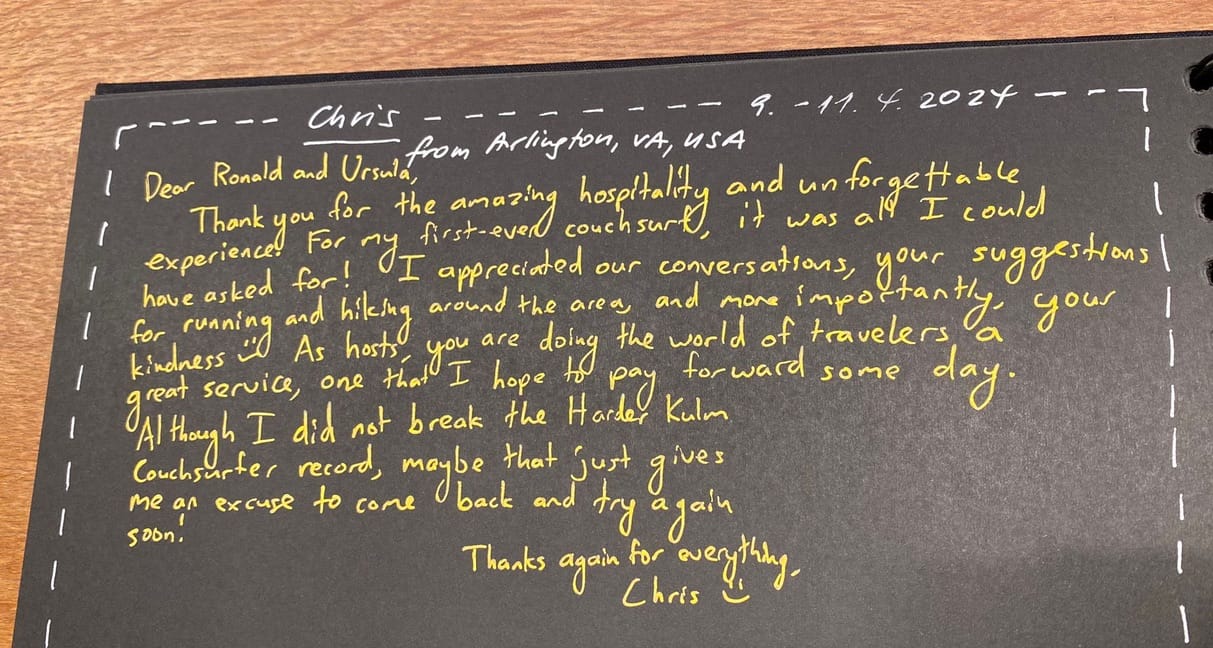 Chris 9. - 11. 4. 2024
from Arlington, VA, USA
Dear Ronald and Ursula,
Thank you for the amazing hospitality and unforgettable
experience! For my first-ever couchsurf, it was all I could
have asked for! I appreciated our conversations, your suggestions
for running and hiking around the area, and more importantly, your
kindness :) As hosts, you are doing the world of travelers a
great service, one that I hope to pay forward some day.
Although I did not break the Harder Kulm
Couchsurfer record, maybe that just gives
me an excuse to come back and try again
soon!
Thanks again for everything,
Chris :)